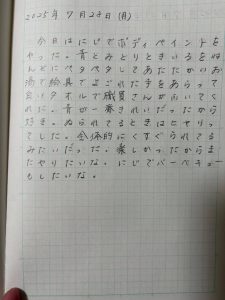 2025年7月28日(月)
今日はにじでボディペイントを
やった。青とみどりときいろをほ
んとにペタペタしてあたたかいお
湯で絵具でよごれた手をあらって
白いタオルで職員さんが ふいてく
れた。青が一番きれいだったから
だ。ぬられてるときはヒヤリっ
てした。全体的にくすぐられてる
みたいだった。楽しかったからま
たやりたいな。にじでバーベキュー
もしたいな。